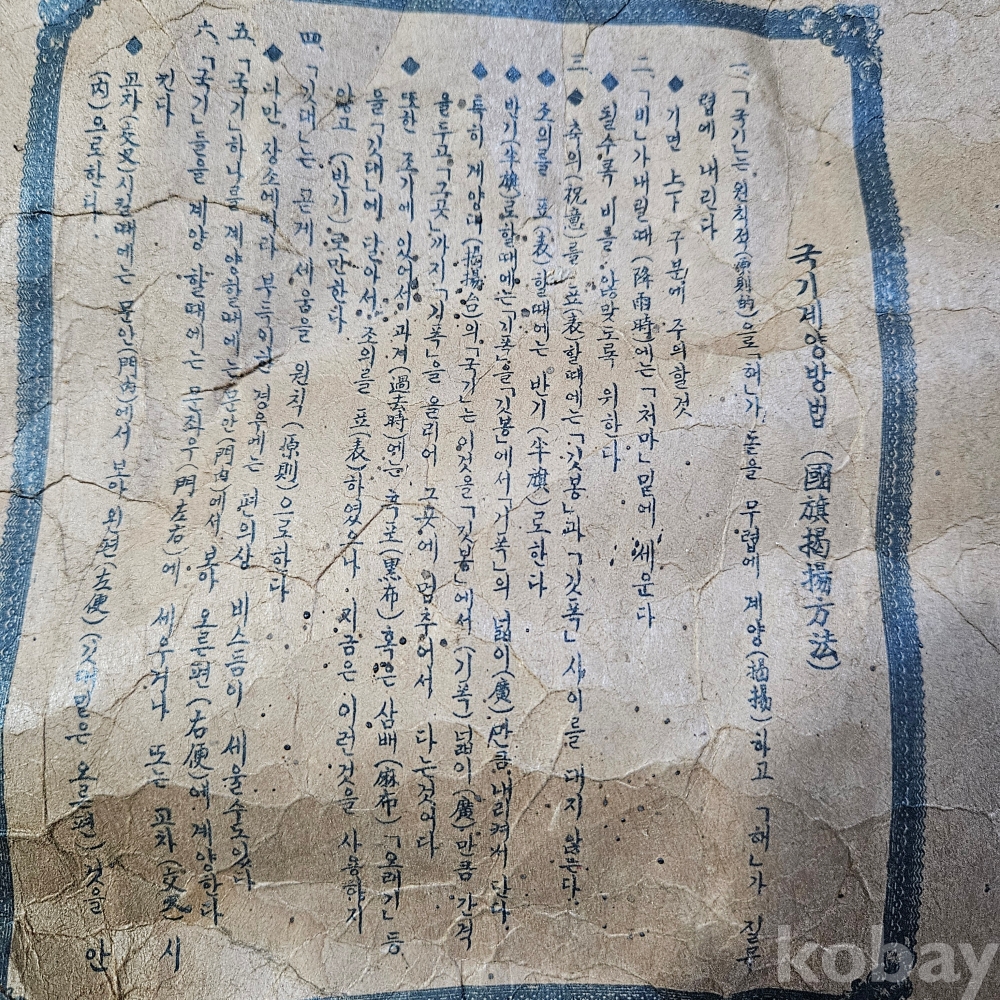 국기게양방법 (國旗揭揚方法)
一、「국기」는 원칙적(原則的)으로 「해」가 돋을 무렵에 계양(揭揚)하고 「해」가 질무
렵에 내린다
◆ 기면 上下 구분에 주의할것
二、「비」가내릴때 (降雨時)에는 「처마」밑에 세운다
◆ 될수록 비를 않맞도록 위한다
三、◆ 축의(祝意)를 표(表)할때에는 「깃봉」과 「깃폭」 사이를 대지 않는다.
◆ 조의를 표(表)할때에는 반기(半旗)로한다
◆ 반기(半旗)로할때에는 「기폭」을 「깃봉」에서 「기폭」의 넓이(廣)만큼 내리켜서 단다.
◆ 특히 게양대(揭揚台)의 「국기」는 이것을 「깃봉」에서 (기폭) 넓이(廣)만큼 간격
을두고 「긋」까지 「기폭」을 올리어 그곳에 멈추어서 다는것이다
◆ 또한 조기에 있어서 과거(過去時)에는 흑포(黑布) 혹은 삼배(麻布) 「오래기」 등
을 「깃대」에 달아서 조의를 표(表)하였으나 지금은 이런것을 사용하지
않고 (반기)로만한다
四、「깃대」는 곧게 세움을 원칙(原則)으로하다
◆ 다만 장소에따라 부득이한 경우에는 편의상 비스듬이 세울수도있다
五、「국기」하나를 계양할때에는 문안(門內)에서 보아 오른편(右便)에 계양한다
六、「국기」둘을 계양 할때에는 문좌우(門左右)에 세우거나 또는 교차(交叉)시
킨다
◆ 교차(交叉)시킬때에는 문안(門內)에서 보아 왼편(左便) (깃대밑은 오른편) 것을 안
(內)으로한다.
kobay